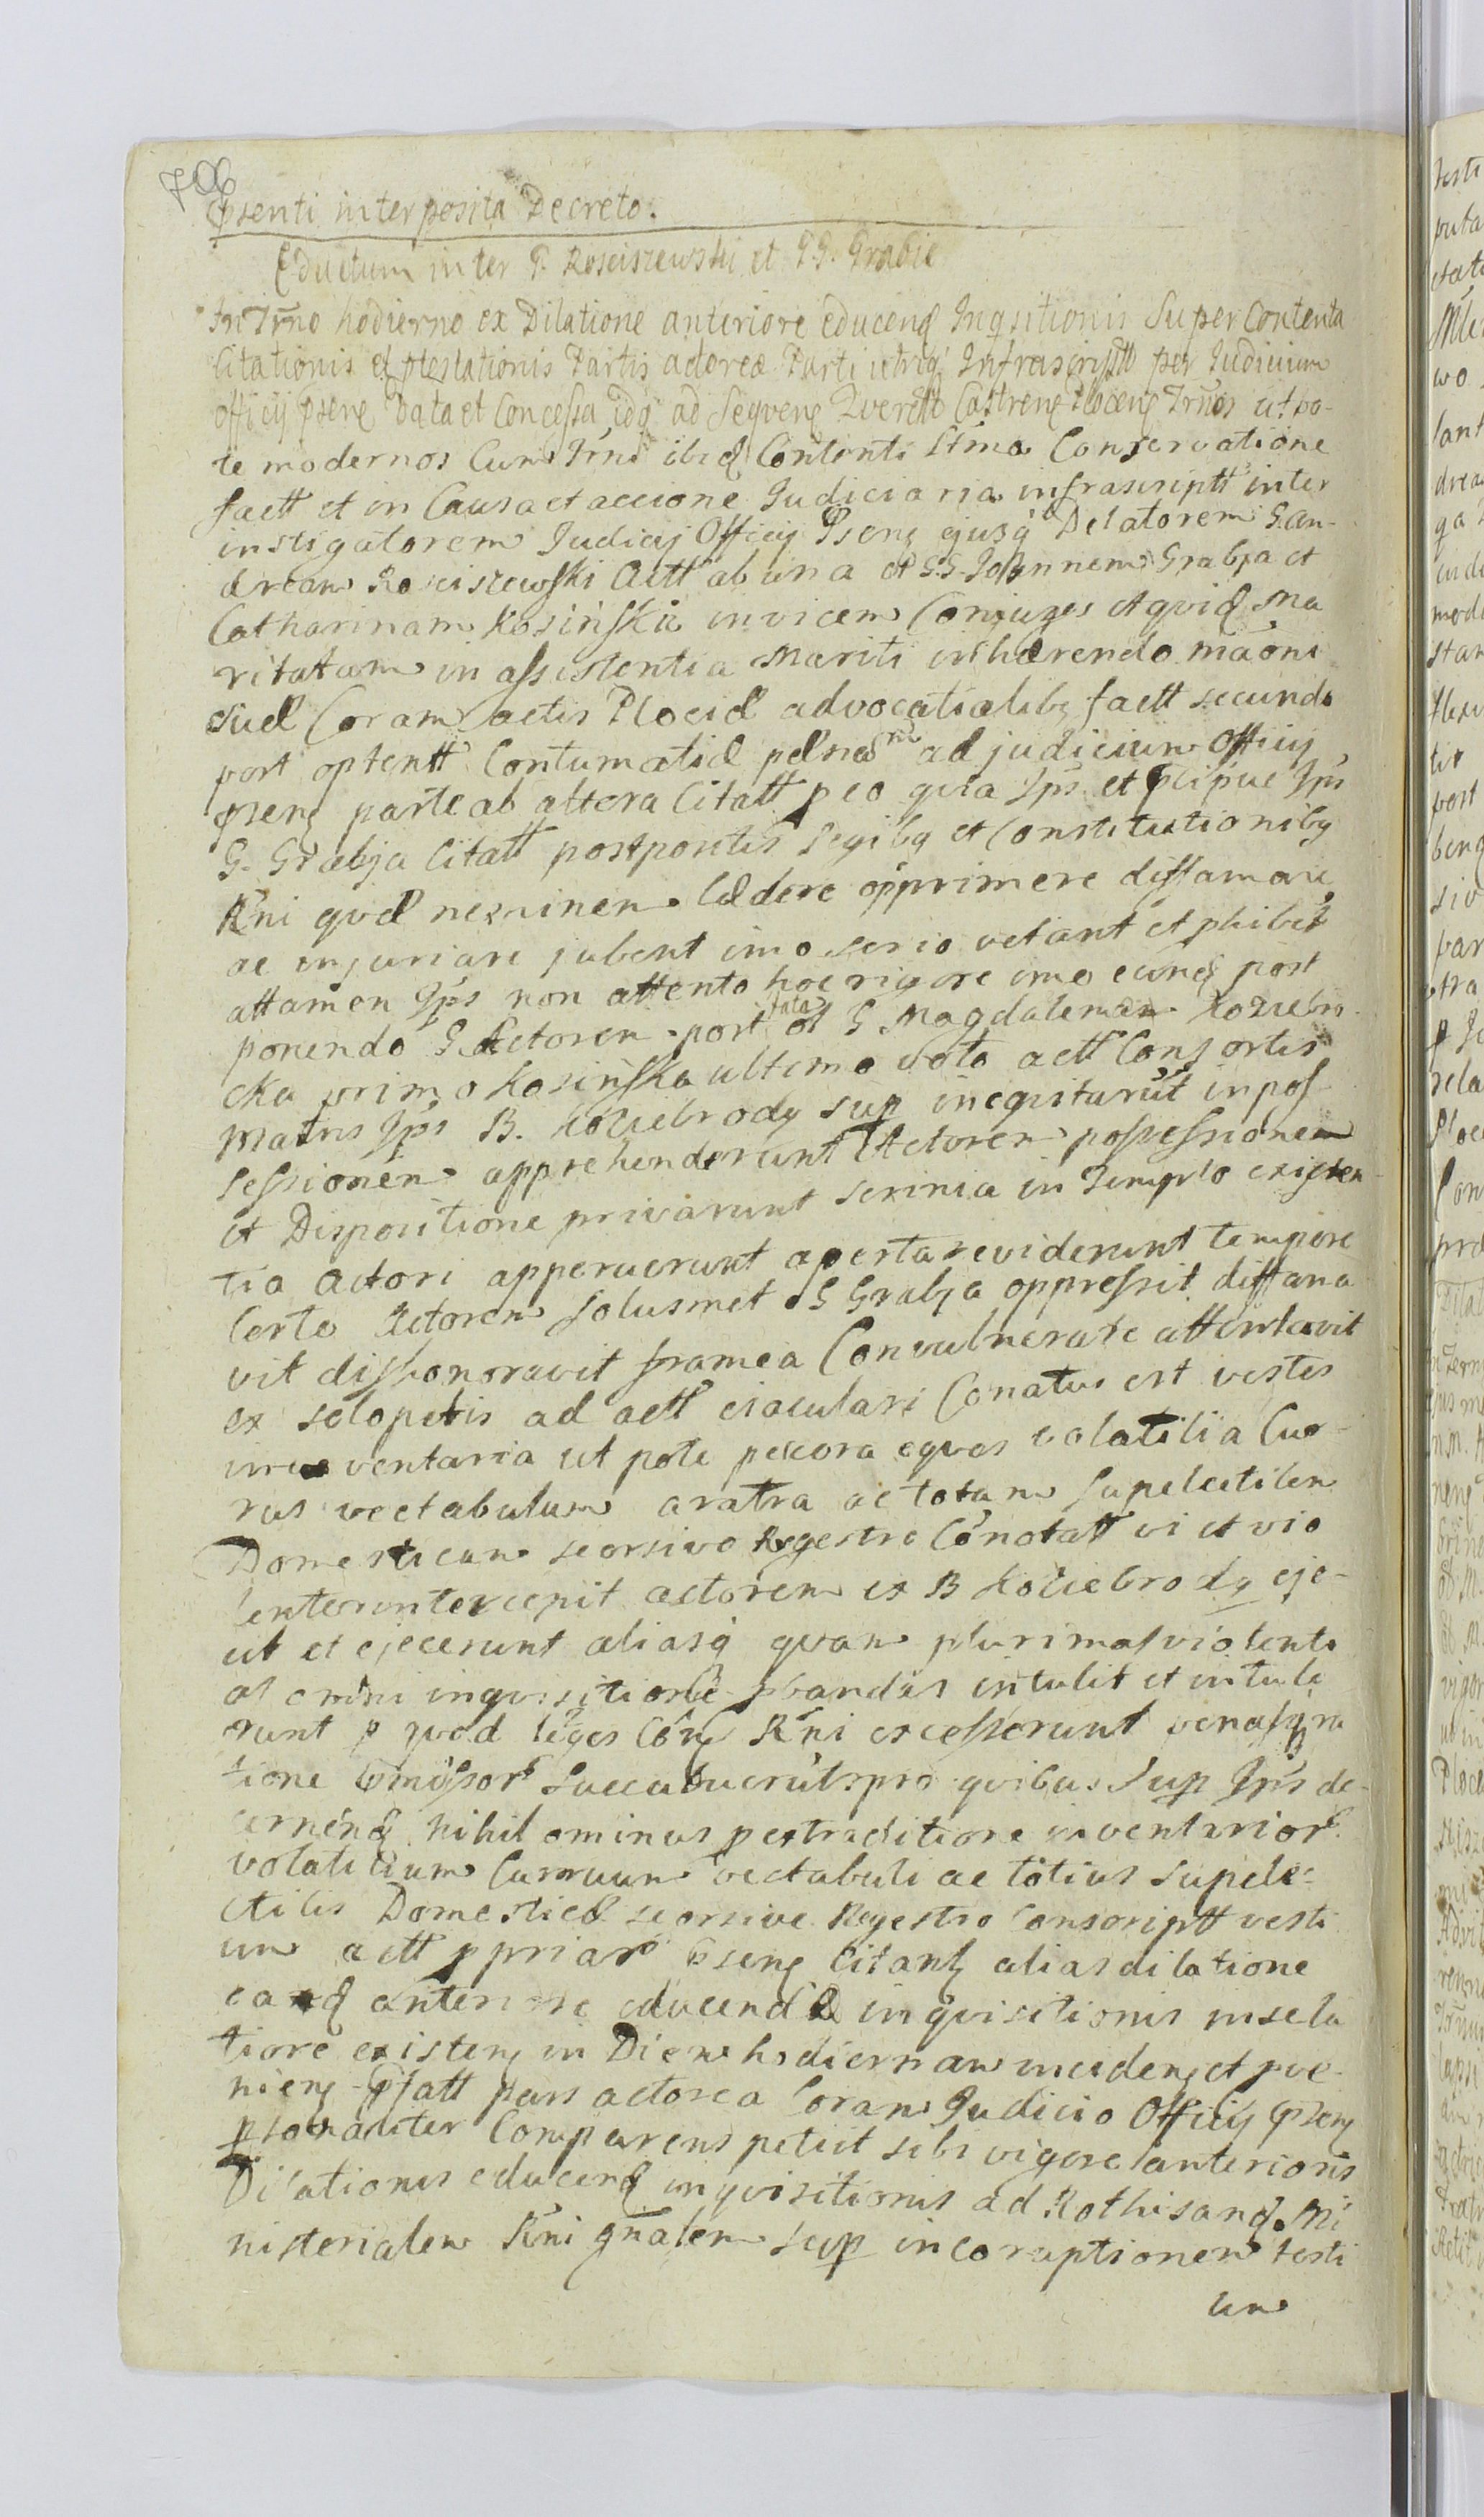 706
psenti interposita Decreto.
Eductum inter G. Rosciszewski et G.G. Grabie
In Trno hodierno ex Dilatione anteriore educend Inqsitionis Super Contenta
Citationis et ptestationis Partis actoreæ Parti utriq Infrascriptt per Judicium
officij psens Data et Concessa idq ad Seqvens Castrens Plocens Trnos utpo-
te modernos Cum Trni ibid Contenti Conservatione
factt et in Causa et accione Judiciaria infrascriptt inter
instigatorem Judicij Officij Psens ejusq Delatorem G. An-
dream Rosciszewski Actt ab una et G.G. Joannem Grabja et
Catharinam Kosińska invicem Coniuges et qvid Ma
ritatam in assistentia Mariti inhærendo
Coram actis Plocid advocatialibq factt secundo
post optentt Contumatid ad judicium Officij
psens parte ab altera Citatt peo qvia Ips et pcipue Ips
G. Grabja Citatt postpositis Legibq et Constitutionibq
Rni qvd neminem lædere opprimere diffamare
ac injuriare jubent imo serio vetant et phibet
attamen Ips non attento hoc rigore imo post
ponendo G. Actorem post fata ol G Magdalenam Koziebro
cka primo Kosińska ultimo voto actt Consortis
Matris Ips B. Koziebrody sup ineqvitarut in pos
sessionem apprehenderunt Actorem possessionem
et Dispositione privarunt scrinia in Templo existen
tia actori apperuerunt aperta reviderunt tempore
Certo Actorem solusmet G Grabja oppressit diffama
vit dishonoravit framea Convulnerare attentavit
ex sclopetis ad actt eiaculari Conatus est vestes
inventaria ut pote peccora eqvos volatilia Cur
rus vectabulum aratra ac totam supelectilem
Domesticam seorsivo Regestro Conotatt vi et vio
lenter intercepit actorem ex B Koziebrody eje-
cit et ejecerunt aliasq qvam plurimas violente
at omni inqvisitione pbandas intulit et intule
runt p qvod leges Cons Rni excesserunt
tione Comissor Succubuerut pro qvibus sup Ips de-
cernend nihilominus p extraditione inventarior
volatilium Curruum vectabuli ac totius supele-
ctilis Domestica seorsive Regestro Conscriptt vesti
um actt ppriar psens Citant alias dilatione
eand anteriore educend inqvisitionis
tiore existens in Diem hodiernam incidens et pve-
niens psatt pars actorea Coram Judicio Officij psens
psonaliter Comparens petiit sibi vigore anterioris
Dilationis educend inqvisitionis ad Rothisand Mi
nisterialem Rni gnalem sup incoruptionem testi
um